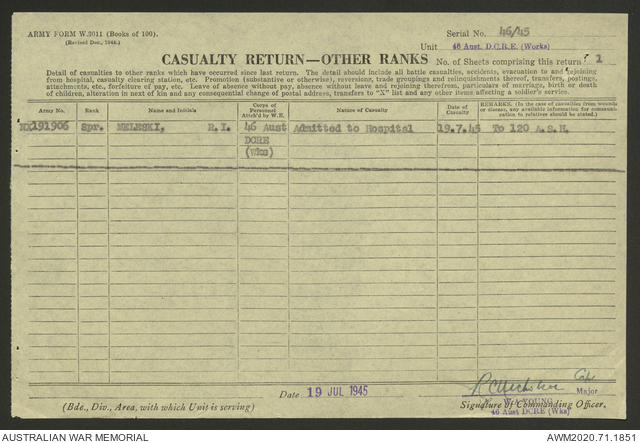 ARMY FORM W.3011 (Books of 100).
(Revised Dec., 1944.)
Serial No. 46/45
Unit 46 Aust. D.C.R.E. (Works)
CASUALTY RETURN—OTHER RANKS
No. of Sheets comprising this return 1
Detail of casualties to other ranks which have occurred since last return. The detail should include all battle casualties, accidents, evacuation to and rejoining
from hospital, casualty clearing station, etc. Promotion (substantive or otherwise), reversions, trade groupings and relinquishments thereof, transfers, postings,
attachments, etc., forfeiture of pay, etc. Leave of absence without pay, absence without leave and rejoining therefrom, particulars of marriage, birth or death
of children, alteration in next of kin and any consequential change of postal address, transfers to "X" list and any other items affecting a soldier's service.
Army No. Rank Name and Initials Corps of Personnel Attch'd by W.E. Nature of Casualty Date of Casualty REMARKS. (In the case of casualties from wounds or disease, any available information for communication to relatives should be stated.)
191906 Spr. MELESKI, R.I. 46 Aust Admitted to Hospital 19.7.45 To 120 A.S.H.
DCRE
(Wks)
Date 19 JUL 1945
Capt
Major
W.A YOUNG
(Bde., Div., Area, with which Unit is serving)
Signature of Commanding Officer.
46 Aust DCRE (Wks)
AUSTRALIAN WAR MEMORIAL
AWM2020.71.1851